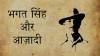 भगत सिंह
और
आज़ादी